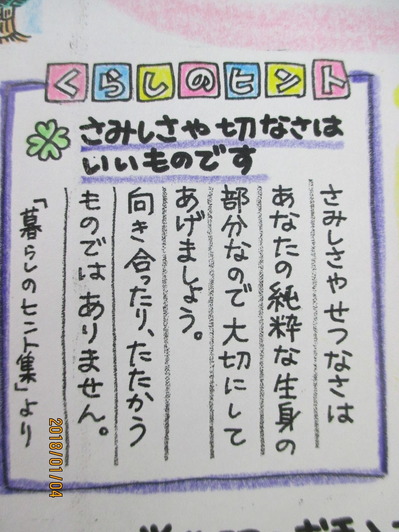 くらしのヒント
さみしさや切なさは
いいものです
さみしさやせつなさは
あなたの純粋な生身の
部分なので大切にして
あげましょう。
向き合ったり、たたかう
ものではありません。
「暮らしのヒント集」より
2018/01/04